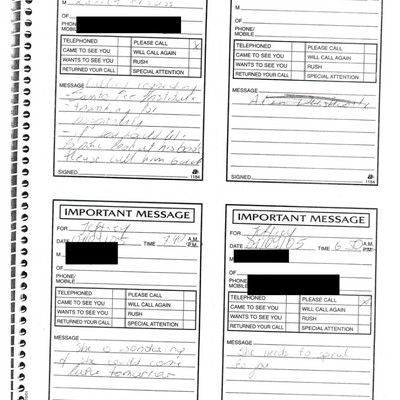 M
OF
PHONE/
MOBILE
TELEPHONED PLEASE CALL X
CAME TO SEE YOU WILL CALL AGAIN
WANTS TO SEE YOU RUSH
RETURNED YOUR CALL SPECIAL ATTENTION
MESSAGE
- Santa Fe Institute
- thanking for
hospitality
- if you would like
please call him back
SIGNED
1184
M
OF
PHONE/
MOBILE
TELEPHONED PLEASE CALL
CAME TO SEE YOU WILL CALL AGAIN
WANTS TO SEE YOU RUSH
RETURNED YOUR CALL SPECIAL ATTENTION
MESSAGE
SIGNED
1184
IMPORTANT MESSAGE
FOR Jeffrey
DATE TIME A.M. P.M.
M
OF
PHONE/
MOBILE
TELEPHONED PLEASE CALL
CAME TO SEE YOU WILL CALL AGAIN
WANTS TO SEE YOU RUSH
RETURNED YOUR CALL SPECIAL ATTENTION
MESSAGE
She is wondering
if she could come
tomorrow
IMPORTANT MESSAGE
FOR Jeffrey
DATE TIME A.M. P.M.
M
OF
PHONE/
MOBILE
TELEPHONED PLEASE CALL X
CAME TO SEE YOU WILL CALL AGAIN
WANTS TO SEE YOU RUSH
RETURNED YOUR CALL SPECIAL ATTENTION
MESSAGE
She needs to speak
to you